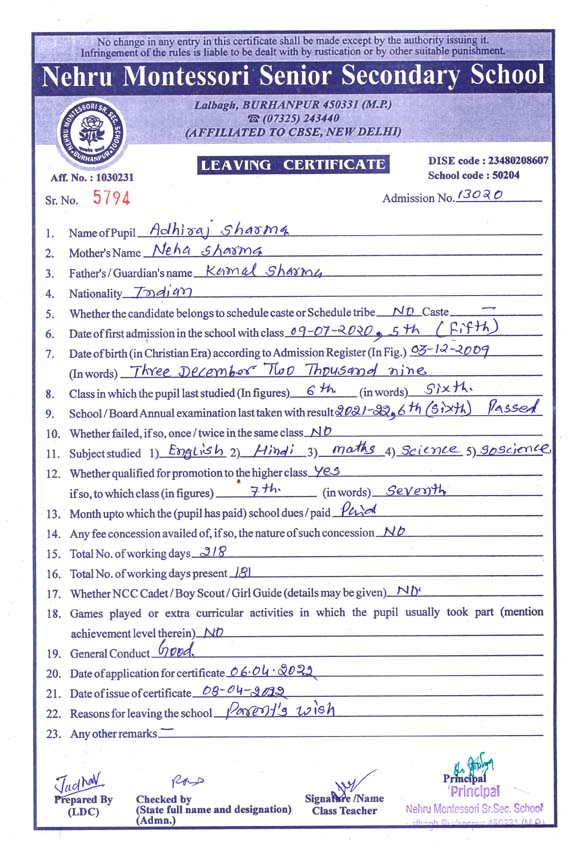 No change in any entry in this certificate shall be made except by the authority issuing it.
Infringement of the rules is liable to be dealt with by rustication or by other suitable punishment.
Nehru Montessori Senior Secondary School
Lalbagh, BURHANPUR 450331 (M.P.)
☎ (07325) 243440
(AFFILIATED TO CBSE, NEW DELHI)
NEHRU MONTESSORI SR. SEC. SCHOOL
BURHANPUR
LEAVING CERTIFICATE
DISE code : 23480208607
School code : 50204
Aff. No. : 1030231
Sr. No. 5794
Admission No. 13020
1. Name of Pupil Adhiraj Sharma
2. Mother's Name Neha Sharma
3. Father's / Guardian's name Kamal Sharma
4. Nationality Indian
5. Whether the candidate belongs to schedule caste or Schedule tribe NO Caste —
6. Date of first admission in the school with class 09-07-2020, 5th (Fifth)
7. Date of birth (in Christian Era) according to Admission Register (In Fig.) 03-12-2009
(In words) Three December Two Thousand nine
8. Class in which the pupil last studied (In figures) 6th (in words) Sixth.
9. School / Board Annual examination last taken with result 2021-22, 6th (Sixth) Passed
10. Whether failed, if so, once / twice in the same class NO
11. Subject studied 1) English 2) Hindi 3) maths 4) Science 5) so science
12. Whether qualified for promotion to the higher class yes
if so, to which class (in figures) 7th. (in words) Seventh
13. Month upto which the (pupil has paid) school dues / paid Paid
14. Any fee concession availed of, if so, the nature of such concession NO
15. Total No. of working days 218
16. Total No. of working days present 181
17. Whether NCC Cadet / Boy Scout / Girl Guide (details may be given) NO
18. Games played or extra curricular activities in which the pupil usually took part (mention
achievement level therein) NO
19. General Conduct Good.
20. Date of application for certificate 06.04.2022
21. Date of issue of certificate 08-04-2022
22. Reasons for leaving the school Parent's wish
23. Any other remarks —
Jadhav
Prepared By
(LDC)
Checked by
(State full name and designation)
(Admn.)
Signature /Name
Class Teacher
Principal
Principal
Nehru Montessori Sr.Sec. School
Lalbagh Burhanpur 450331 (M.P.)